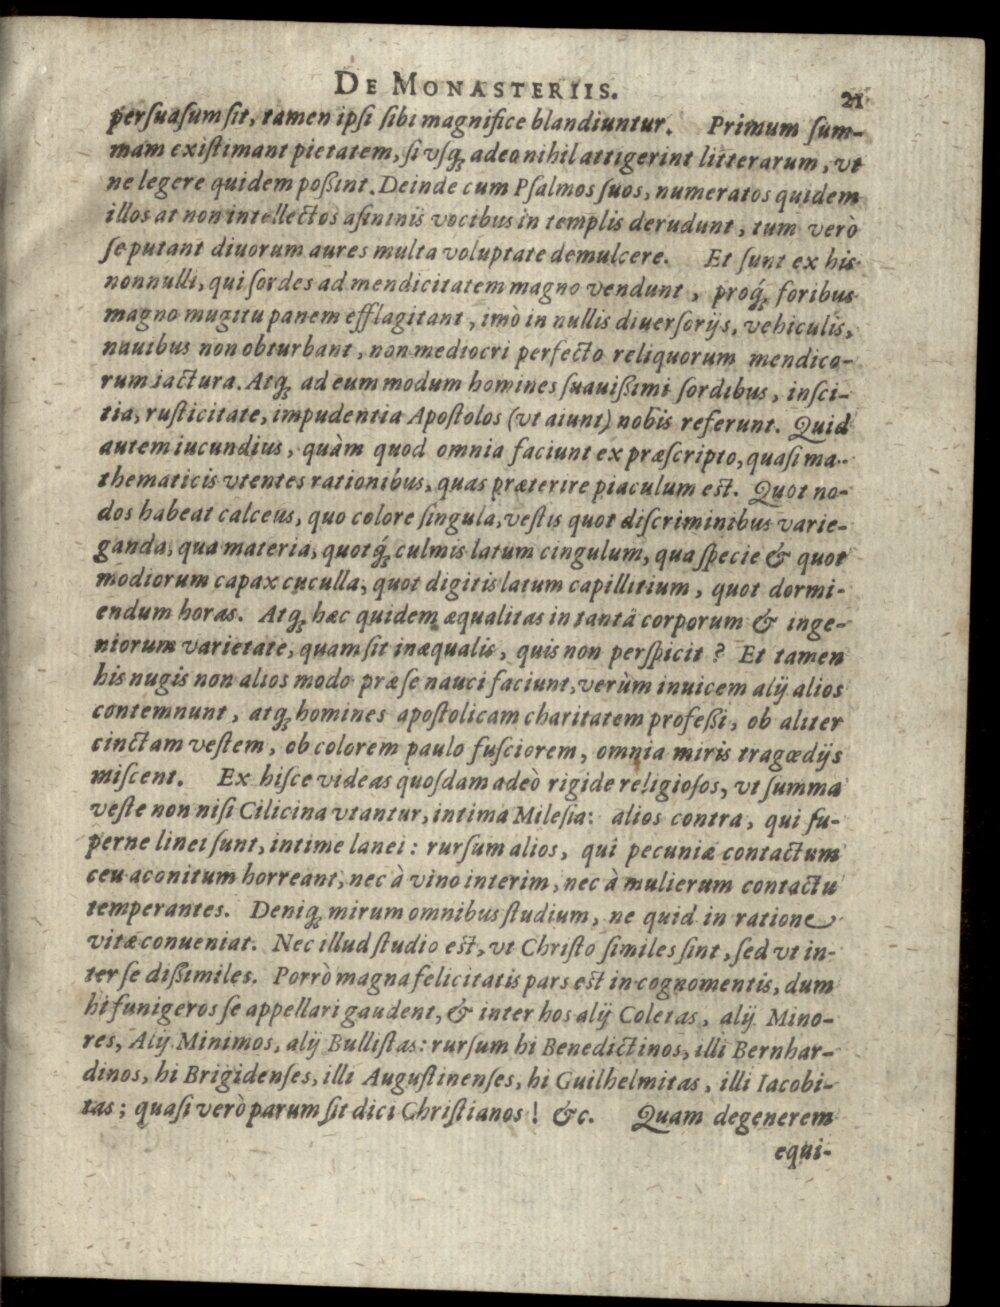 DE MONASTERIIS. 21
perſuaſum ſit, tamen ipſi ſibi magnifice blandiuntur. Primum ſum-
mam exiſtimant pietatem, ſi vſq; adeo nihil attigerint litterarum, vt
ne legere quidem poßint. Deinde cum Pſalmos ſuos, numeratos quidem
illos at non intellectos aſininis vocibus in templis derudunt, tum verò
ſe putant diuorum aures multa voluptate demulcere. Et ſunt ex his
nonnulli, qui ſordes ad mendicitatem magno vendunt, proq́; foribus
magno mugitu panem efflagitant, imò in nullis diuerſorijs, vehiculis,
nauibus non obturbant, non mediocri perfecto reliquorum mendico-
rum iactura. Atq; ad eum modum homines ſuauißimi ſordibus, inſci-
tia, ruſticitate, impudentia Apoſtolos (vt aiunt) nobis referunt. Quid
autem iucundius, quàm quod omnia faciunt ex præſcripto, quaſi ma-
thematicis vtentes rationibus, quas præterire piaculum eſt. Quot no-
dos habeat calceus, quo colore ſingula, veſtis quot diſcriminibus varie-
ganda, qua materia, quotq́; culmis latum cingulum, qua ſpecie & quot
modiorum capax cuculla, quot digitis latum capillitium, quot dormi-
endum horas. Atq; hæc quidem æqualitas in tantâ corporum & inge-
niorum varietate, quam ſit inæqualis, quis non perſpicit ? Et tamen
his nugis non alios modo præ ſe nauci faciunt, verùm inuicem alij alios
contemnunt, atq; homines apoſtolicam charitatem profeßi, ob aliter
cinctam veſtem, ob colorem paulo fuſciorem, omnia miris tragœdijs
miſcent. Ex hiſce videas quoſdam adeò rigide religioſos, vt ſumma
veſte non niſi Cilicina vtantur, intima Mileſia: alios contra, qui ſu-
perne linei ſunt, intime lanei : rurſum alios, qui pecuniæ contactum
ceu aconitum horreant, nec à vino interim, nec à mulierum contactu
temperantes. Deniq; mirum omnibus ſtudium, ne quid in ratione
vitæ conueniat. Nec illud ſtudio eſt, vt Chriſto ſimiles ſint, ſed vt in-
ter ſe dißimiles. Porrò magna felicitatis pars eſt in cognomentis, dum
hi funigeros ſe appellari gaudent, & inter hos alij Coletas, alij Mino-
res, Alij Minimos, alij Bulliſtas: rurſum hi Benedictinos, illi Bernhar-
dinos, hi Brigidenſes, illi Auguſtinenſes, hi Guilhelmitas, illi Iacobi-
tas ; quaſi verò parum ſit dici Chriſtianos ! &c. Quam degenerem
equi-